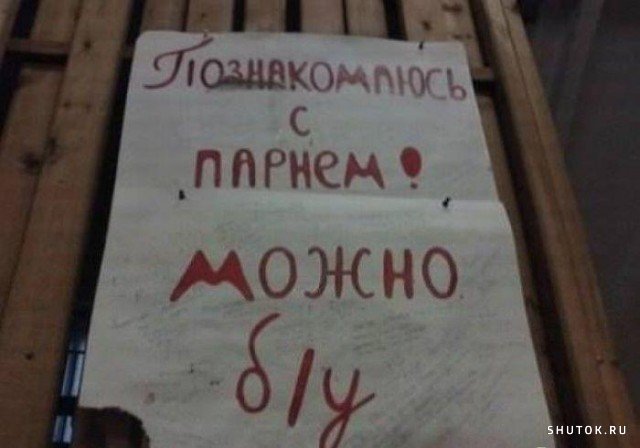 Познакомлюсь
с
парнем!
можно
б/у
SHUTOK.RU